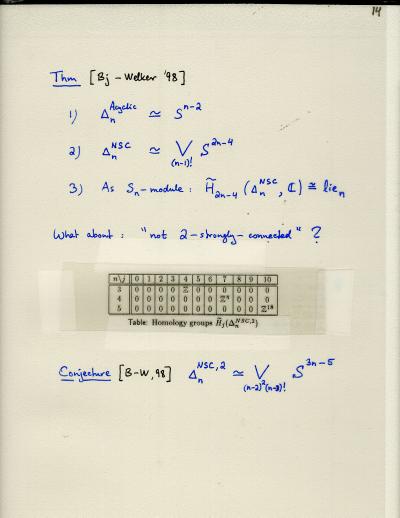 14
Thm [Bj - Welker '98]
1) Δₙ^Acyclic ≃ S^{n-2}
2) Δₙ^NSC ≃ ⋁_{(n-1)!} S^{2n-4}
3) As Sₙ-module : H̃_{2n-4} (Δₙ^NSC, ℂ) ≅ lieₙ
What about : "not 2-strongly-connected" ?
n\j 0 1 2 3 4 5 6 7 8 9 10
3 0 0 0 0 ℤ 0 0 0 0 0 0
4 0 0 0 0 0 0 0 ℤ⁴ 0 0 0
5 0 0 0 0 0 0 0 0 0 0 ℤ¹⁸
Table: Homology groups H̃ⱼ(Δₙ^{NSC,2})
Conjecture [B-W, 98] Δₙ^{NSC,2} ≃ ⋁_{(n-2)²(n-3)!} S^{3n-5}